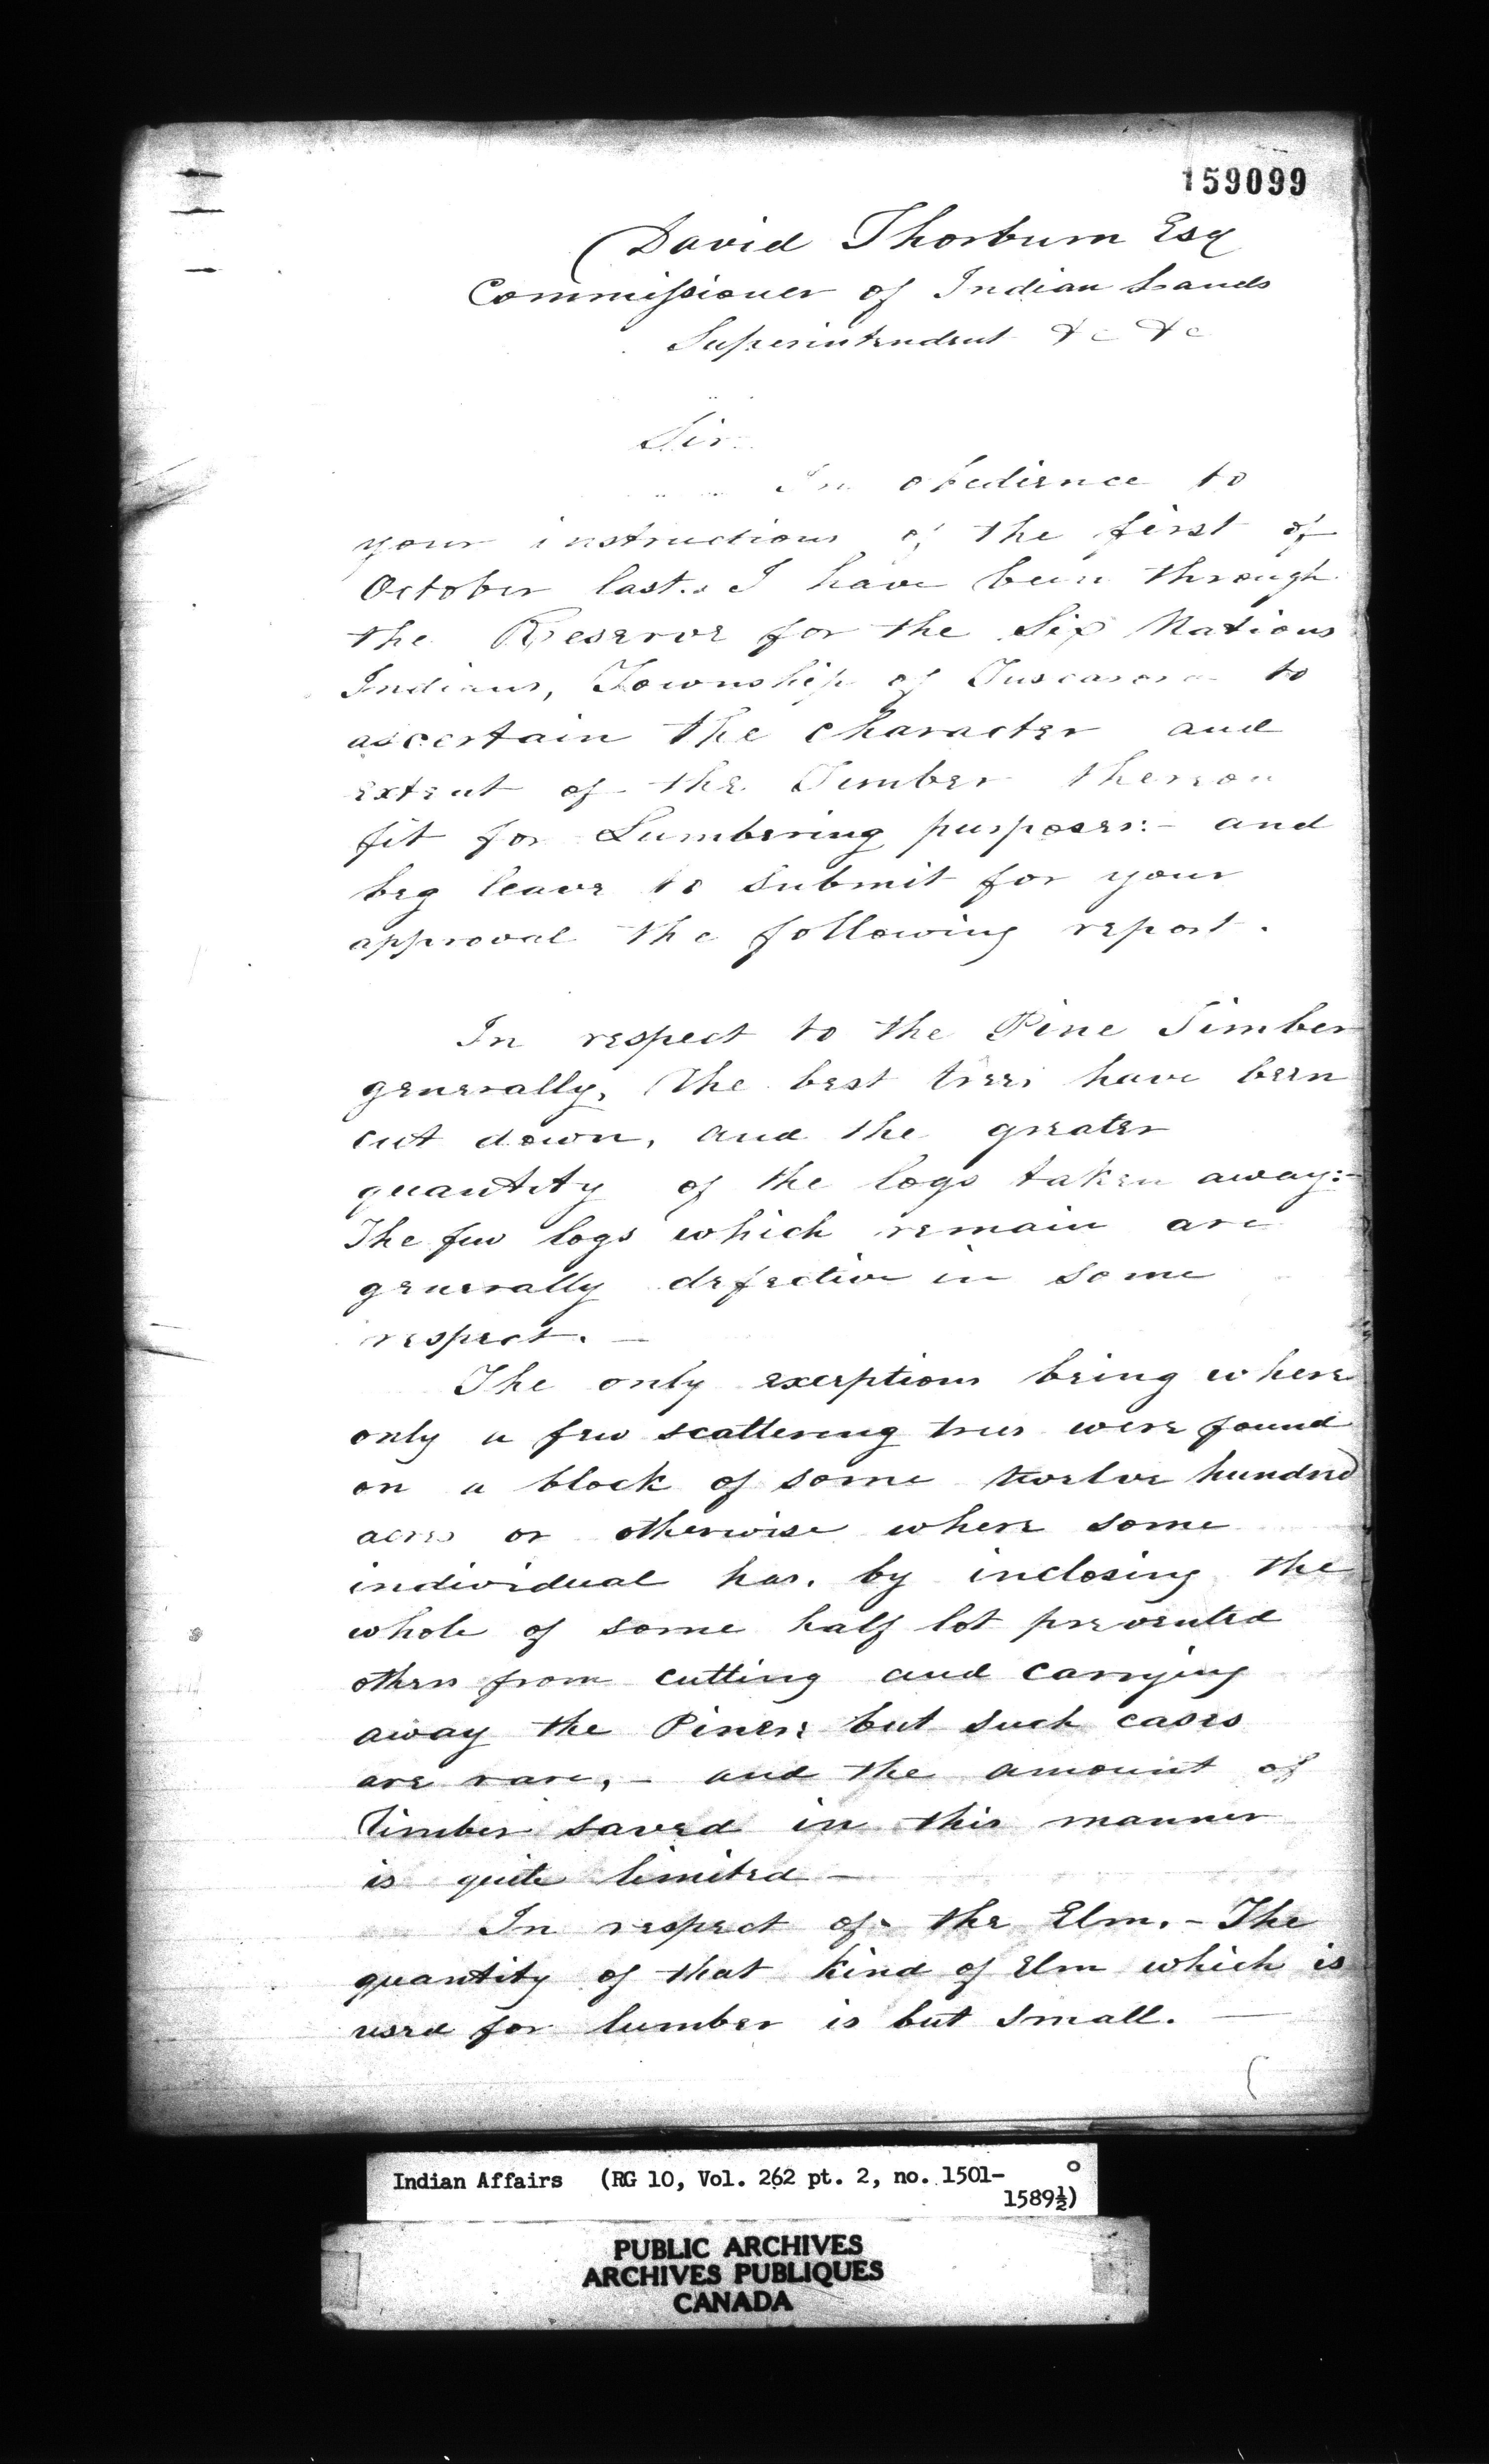 159099
David Thorburn Esq
Commissioner of Indian Lands
Superintendent &c &c
Sir
In obedience to
your instructions of the first of
October last. I have been through
the Reserve for the Six Nations
Indians, Township of Tuscarora to
ascertain the character and
extent of the Timber thereon
fit for Lumbering purposes:- and
beg leave to submit for your
approval the following report.
In respect to the Pine Timber
generally, The best trees have been
cut down, and the greater
quantity of the logs taken away:-
The few logs which remain are
generally defective in some
respect. —
The only exceptions being where
only a few scattering trees were found
on a block of some twelve hundred
acres or otherwise where some
individual has, by inclosing the
whole of some half lot prevented
others from cutting and carrying
away the Pines: but such cases
are rare, - and the amount of
Timber saved in this manner
is quite limited —
In respect of the Elm. - The
quantity of that kind of Elm which is
used for lumber is but small. —
Indian Affairs (RG 10, Vol. 262 pt. 2, no. 1501-
1589½)
PUBLIC ARCHIVES
ARCHIVES PUBLIQUES
CANADA